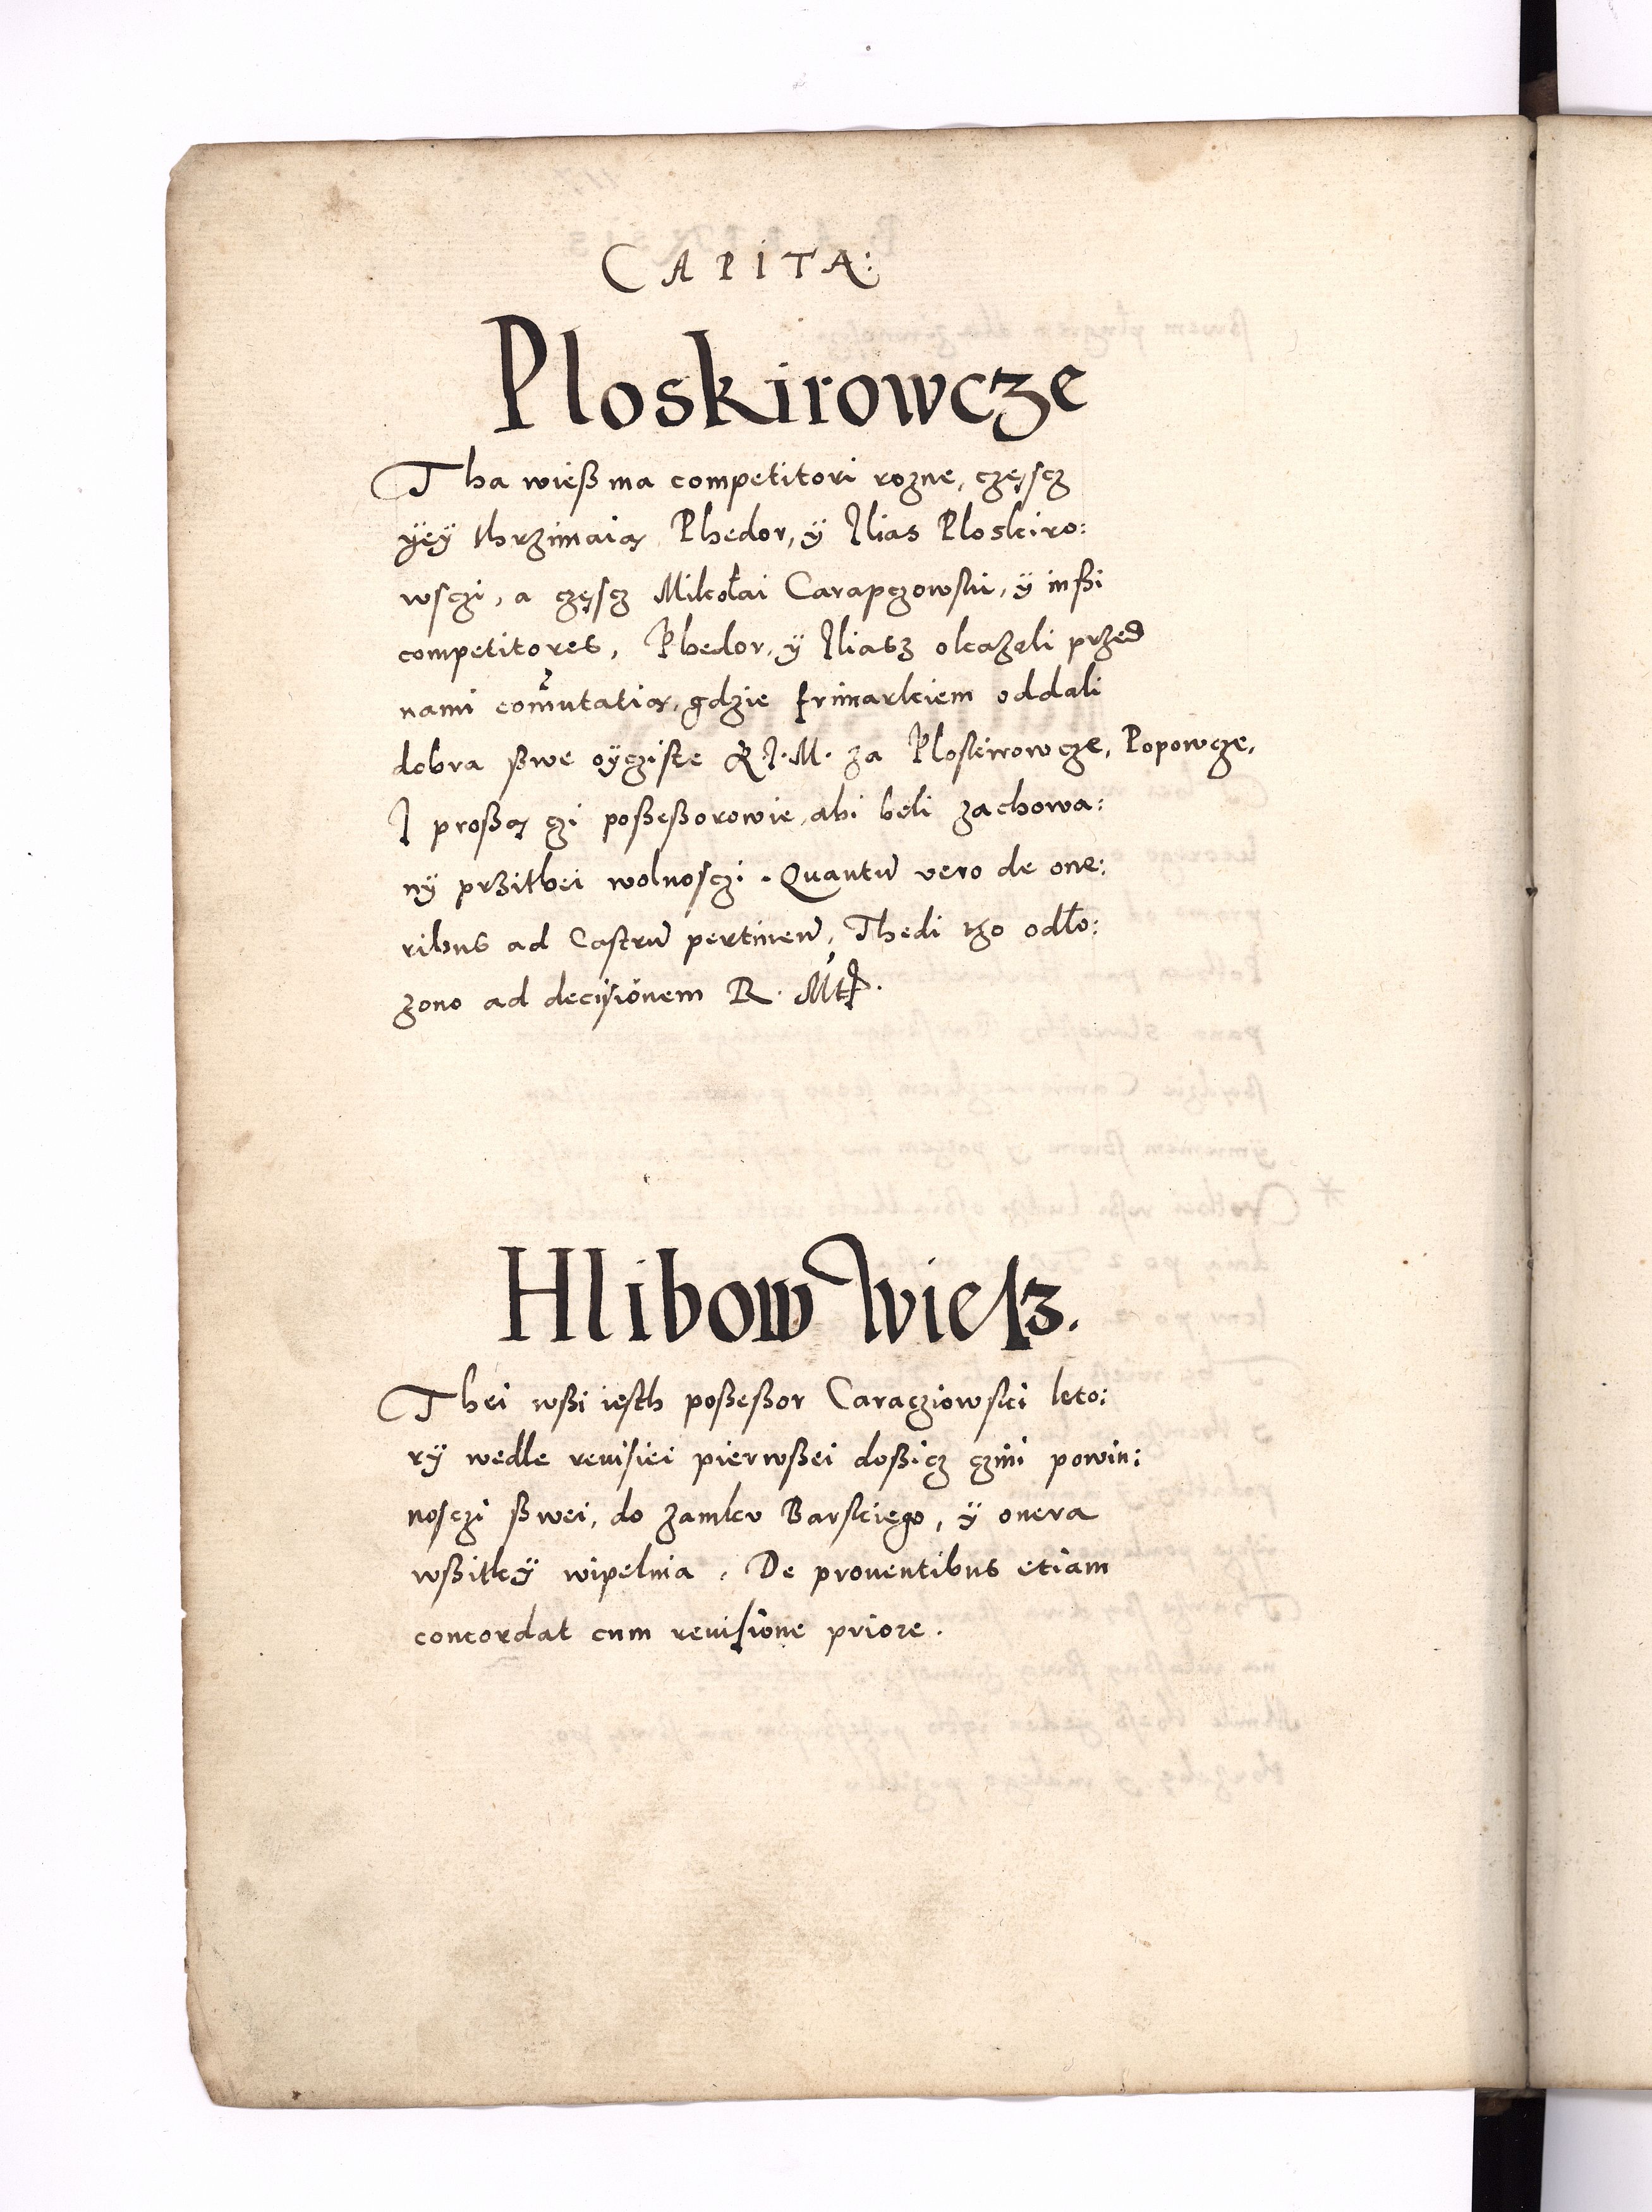 CAPITA:
Ploskirowcze
Tha wieß ma competitori rozne, częscz
ÿeÿ thrzimaią Phedor, ÿ Ilias Ploskiro:
wsczi, a częscz Mikołai Carapczowski, ÿ inßi
competitores, Phedor, ÿ Iliasz okazali przed
nami com̃utatią, gdzie frimarkiem oddali
dobra ßwe oÿcziste K. I. M. za Ploskirrowcze, Popowcze,
I proßą czi poßeßorowie, abi beli zachowa:
nÿ przithei wolnosczi. Quantũ vero de one:
ribus ad Castrũ pertinen̄, Thedi tho odło:
zono ad decisionem R. Mtis.
Hlibow wiesz.
Thei wßi iesth poßeßor Caracziowski kto:
rÿ wedle reuisiei pierwßei doßicz czini powin:
nosczi ßwei, do zamku Barskiego, ÿ onera
wßitkÿ wipelnia. De prouentibus etiam
concordat cum reuisione priore.